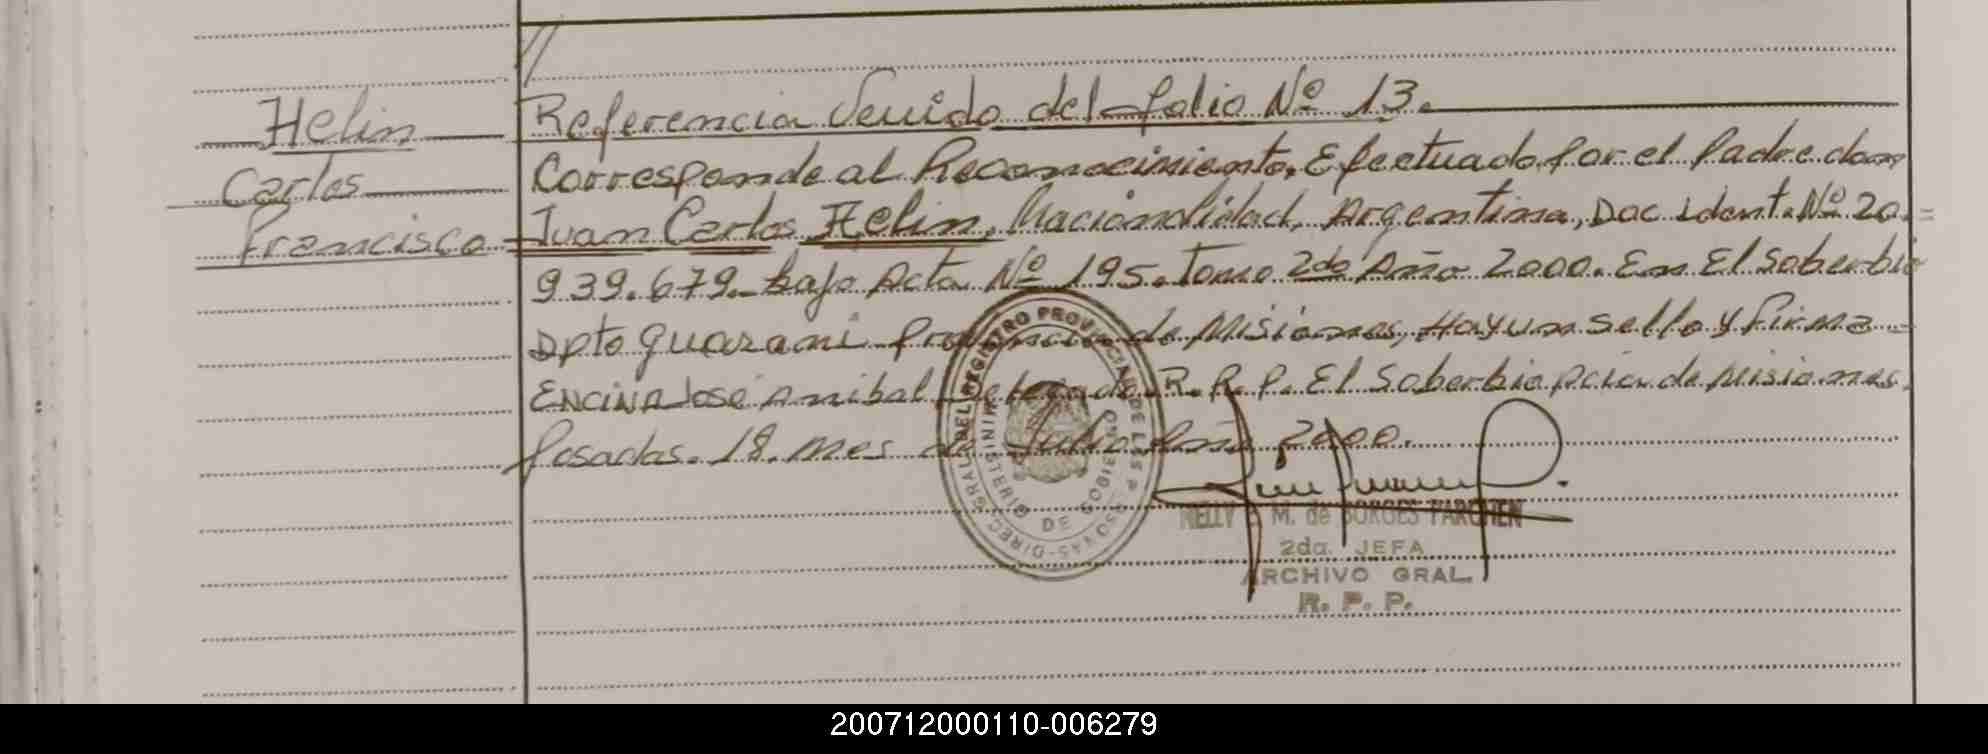 Helin
Carlos
Francisco
Referencia Venido del folio Nº 13.
Corresponde al Reconocimiento, Efectuado por el Padre don
Juan Carlos Helin, Nacionalidad, Argentina, Doc. Ident. Nº 20.=
939.679.- bajo Acta Nº 195. Tomo 2do Año 2000. En El Soberbio
Dpto Guarani Provincia de Misiones, Hay un sello y firma
ENCINA José Anibal, Delegado R.P.P. El Soberbio Pcia de Misiones.
Posadas. 18. mes de Julio Año 2000.
DIRECC. GRAL. DEL REGISTRO PROVINCIAL DE LAS P
MINISTERIO DE GOBIERNO
NELLY M. de BORGES PARCHEN
2da. JEFA
ARCHIVO GRAL.
R. P. P.
200712000110-006279